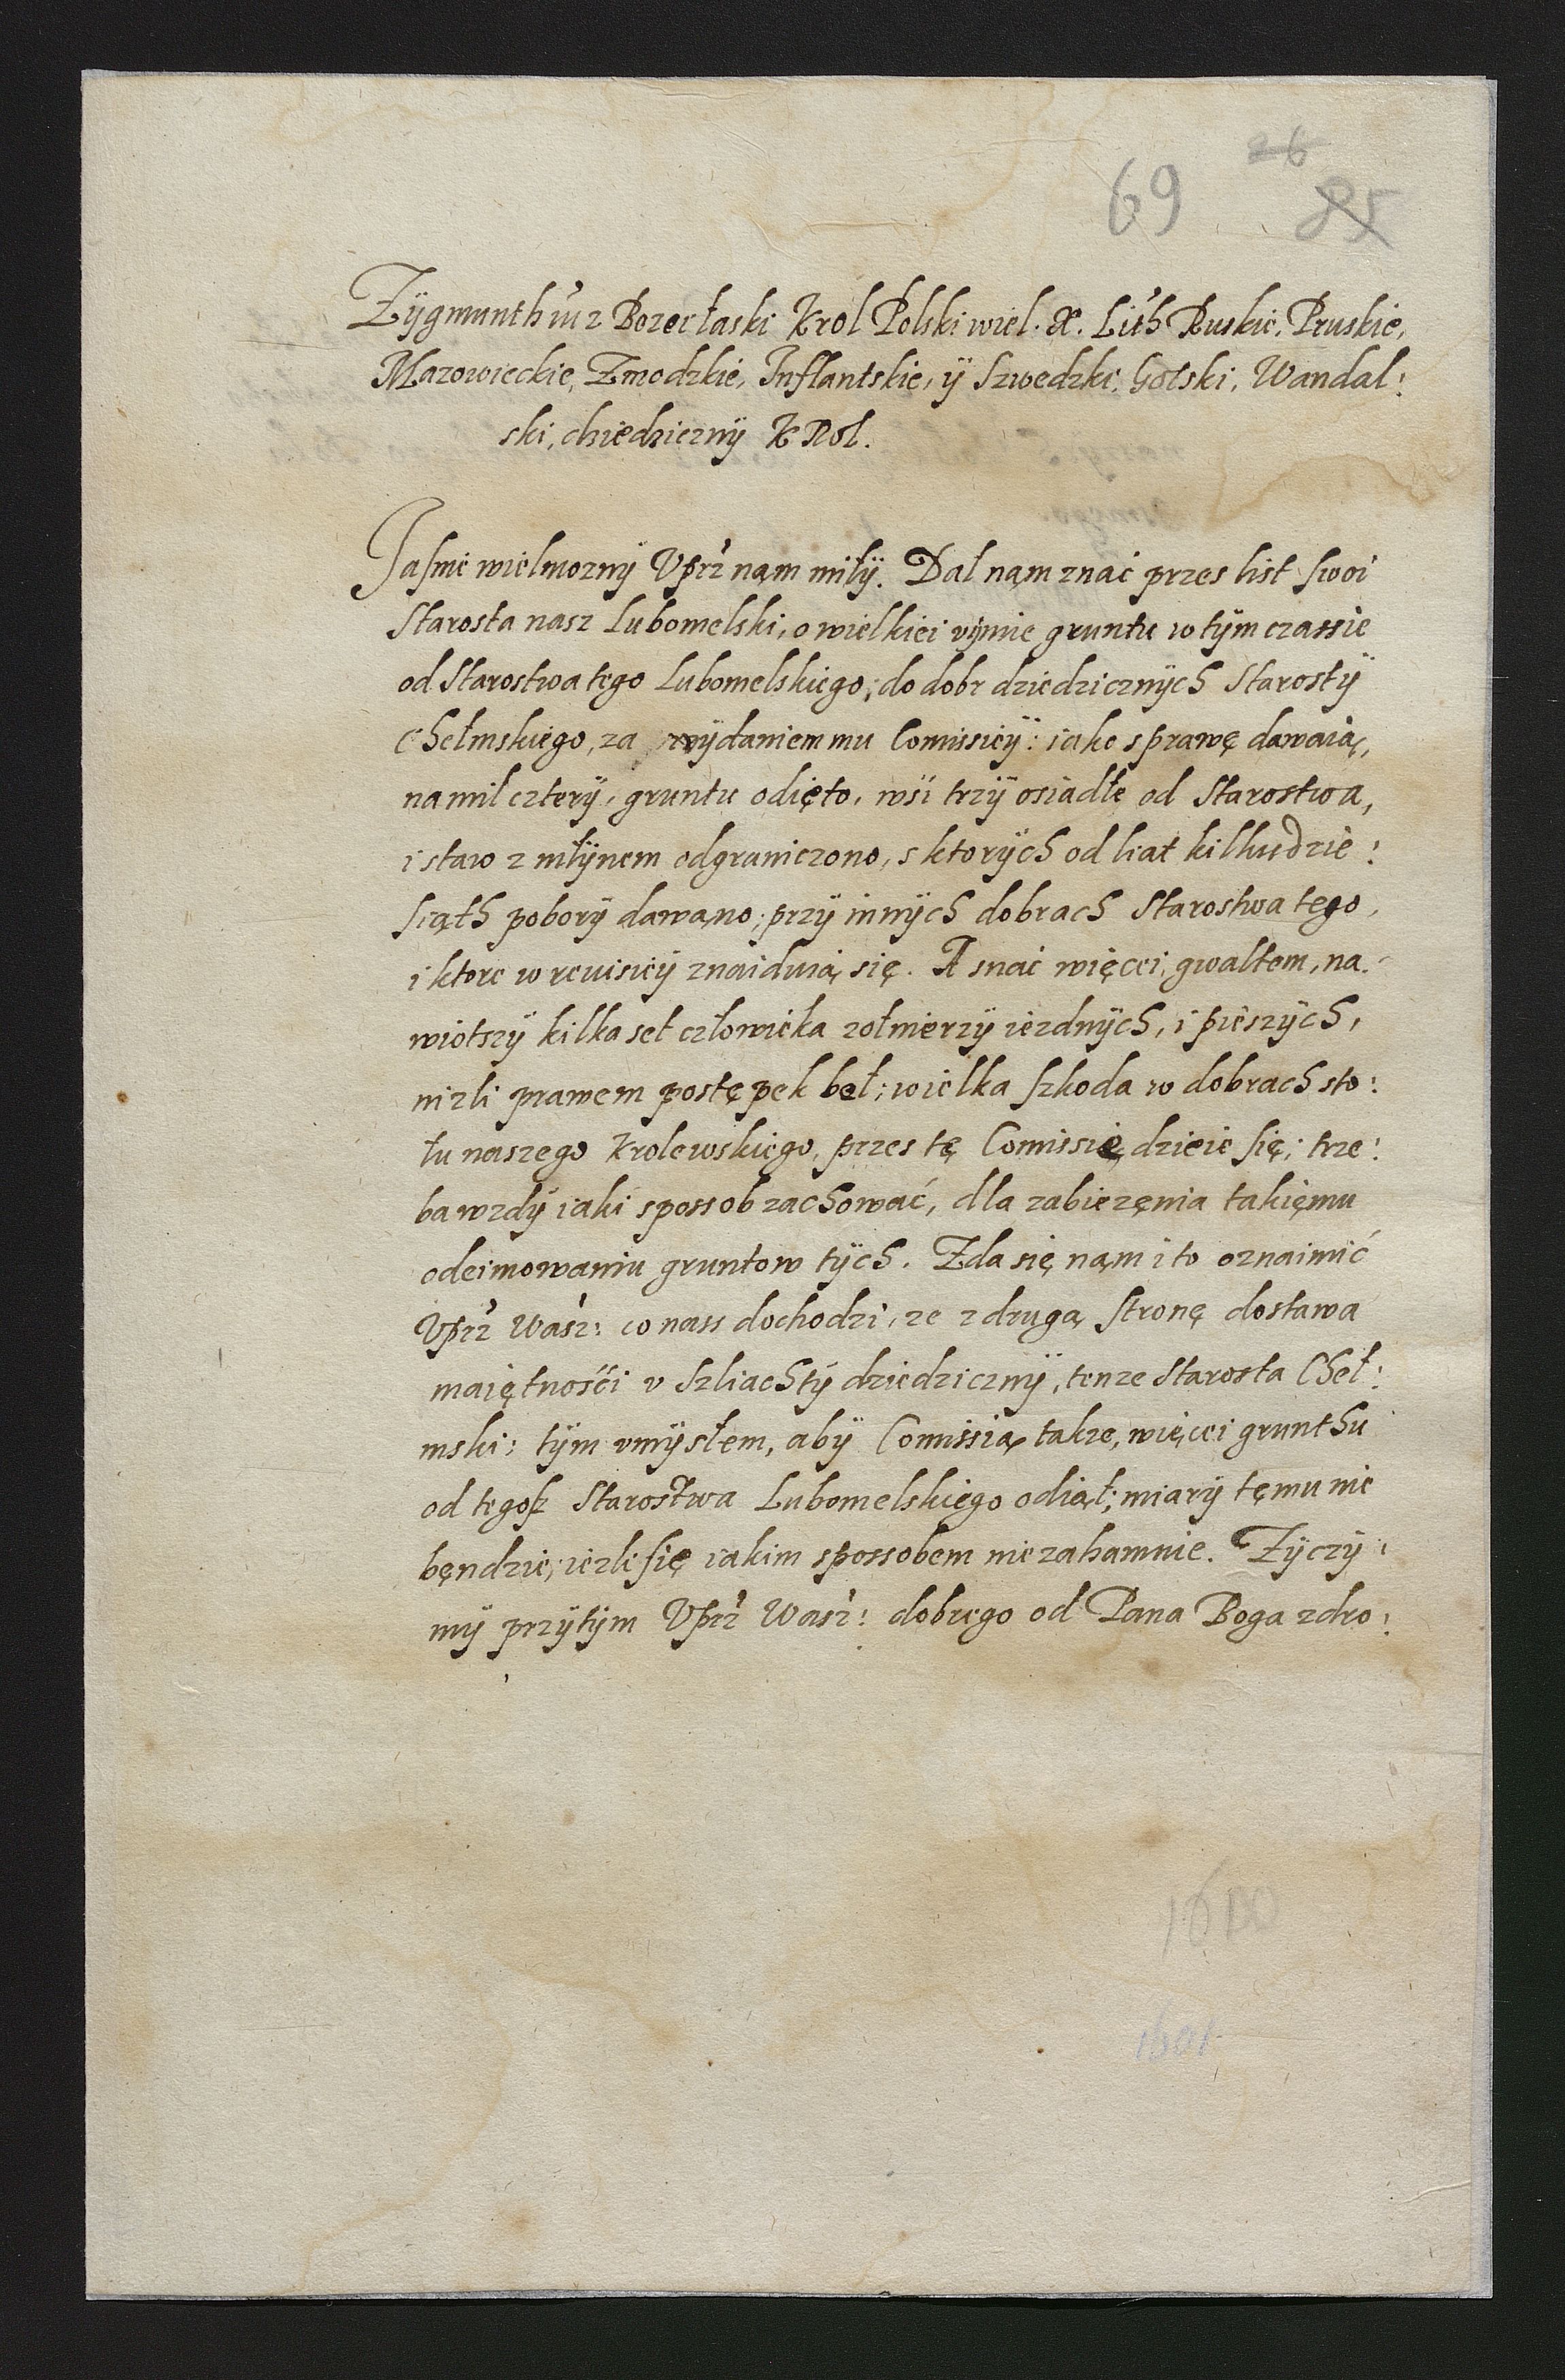 69 26 85
Zÿgmunth iii z Bozeÿ łaski Krol Polski wiel. X. Lith Ruskie, Pruskie,
Mazowieckie, Zmodzkie, Inflantskie, ÿ Szwedzki, Gotski, Wandal:
ski, dziedzicznÿ KRol.
Jasnie wielmoznÿ Vprz nąm miłÿ. Dał nąm znać przes list swoi
Starosta nasz Lubomelski, o wielkiei vÿmie gruntu w tÿm czassie
od Starostwa tego Lubomelskiego, do dobr dziedzicznÿch Starostÿ
Chełmskiego, za wÿdaniem mu Comissieÿ: iako sprawę dawaią,
na mil czterÿ, gruntu odięto, wśi trzÿ osiadłe od Starostwa,
i staw z młÿnem odgraniczono, s ktorÿch od liat kilkudzie:
siąth poborÿ dawano, przÿ innÿch dobrach Starostwa tego,
i ktore w reuisieÿ znaiduią się. A snać więcei, gwałtem, na:
wiotszÿ kilka set człowieka zołnierzÿ iezdnÿch, i pieszÿch,
nizli prawem postępek beł; wielka szkoda w dobrach sto:
łu naszego Krolewskiego, przes tę Comissię dzieie się; trze:
ba wzdÿ iaki spossob zachować, dla zabiezęnia takięmu
odeimowaniu gruntow tÿch. Zda się nąm i to oznaimić
Vprz Wasz: co nass dochodzi, ze z drugą stronę dostawa
maiętnośći v Szliachtÿ dziedzicznÿ, tenze Starosta Cheł:
mski: tÿm vmÿsłem, abÿ Comissią takze, więcei grunthu
od tegosz Starostwa Lubomelskiego odiął; miarÿ tęmu nie
bęndzie, iezli się iakim spossobem nie zahamuie. Zÿczÿ:
mÿ przÿtÿm Vprz Wasz: dobrego od Pana Boga zdro:
1600
1601